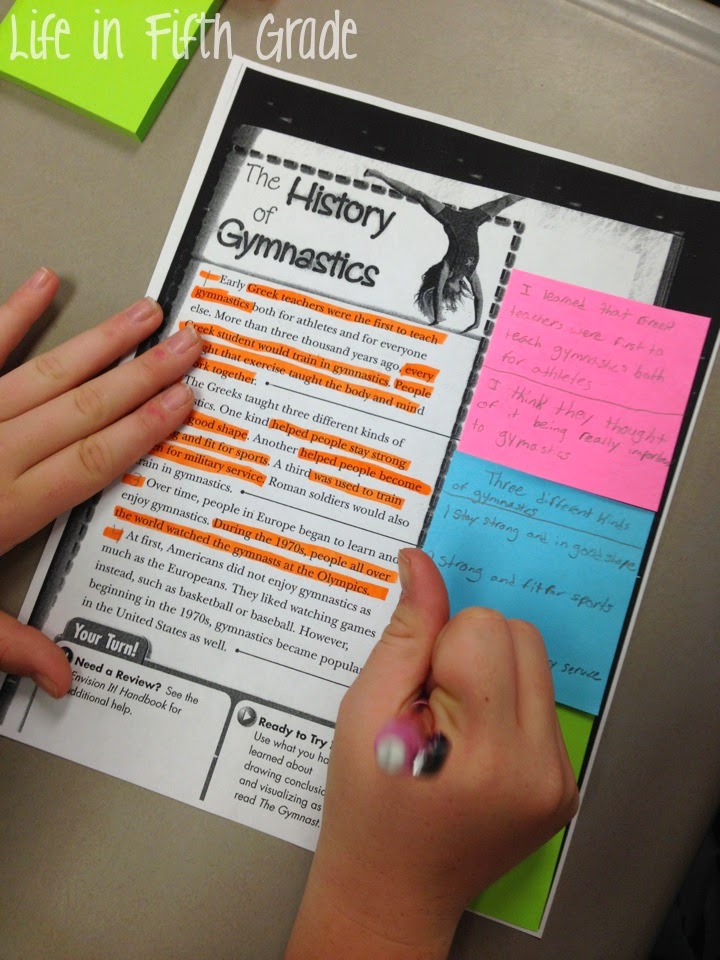 Life in Fifth Grade
The History
of
Gymnastics
Early Greek teachers were the first to teach
gymnastics both for athletes and for everyone
else. More than three thousand years ago, every
Greek student would train in gymnastics. People
that exercise taught the body and mind
work together.
The Greeks taught three different kinds of
One kind helped people stay strong
good shape. Another helped people become
and fit for sports. A third was used to train
for military service. Roman soldiers would also
train in gymnastics.
Over time, people in Europe began to learn and
enjoy gymnastics. During the 1970s, people all over
the world watched the gymnasts at the Olympics.
At first, Americans did not enjoy gymnastics as
much as the Europeans. They liked watching games
instead, such as basketball or baseball. However,
beginning in the 1970s, gymnastics became popular
in the United States as well.
Your Turn!
Need a Review? See the
Envision It! Handbook for
additional help.
Ready to Try
Use what you
learned about
drawing
and visualizing as
read The Gymnast.
I learned that Greek
teachers were first to
teach gymnastics both
for athletes
I think they thought
of it being really
to gymastics
Three different kinds
of gymnastes
1 stay strong and in good shape
strong and fit for sports
service